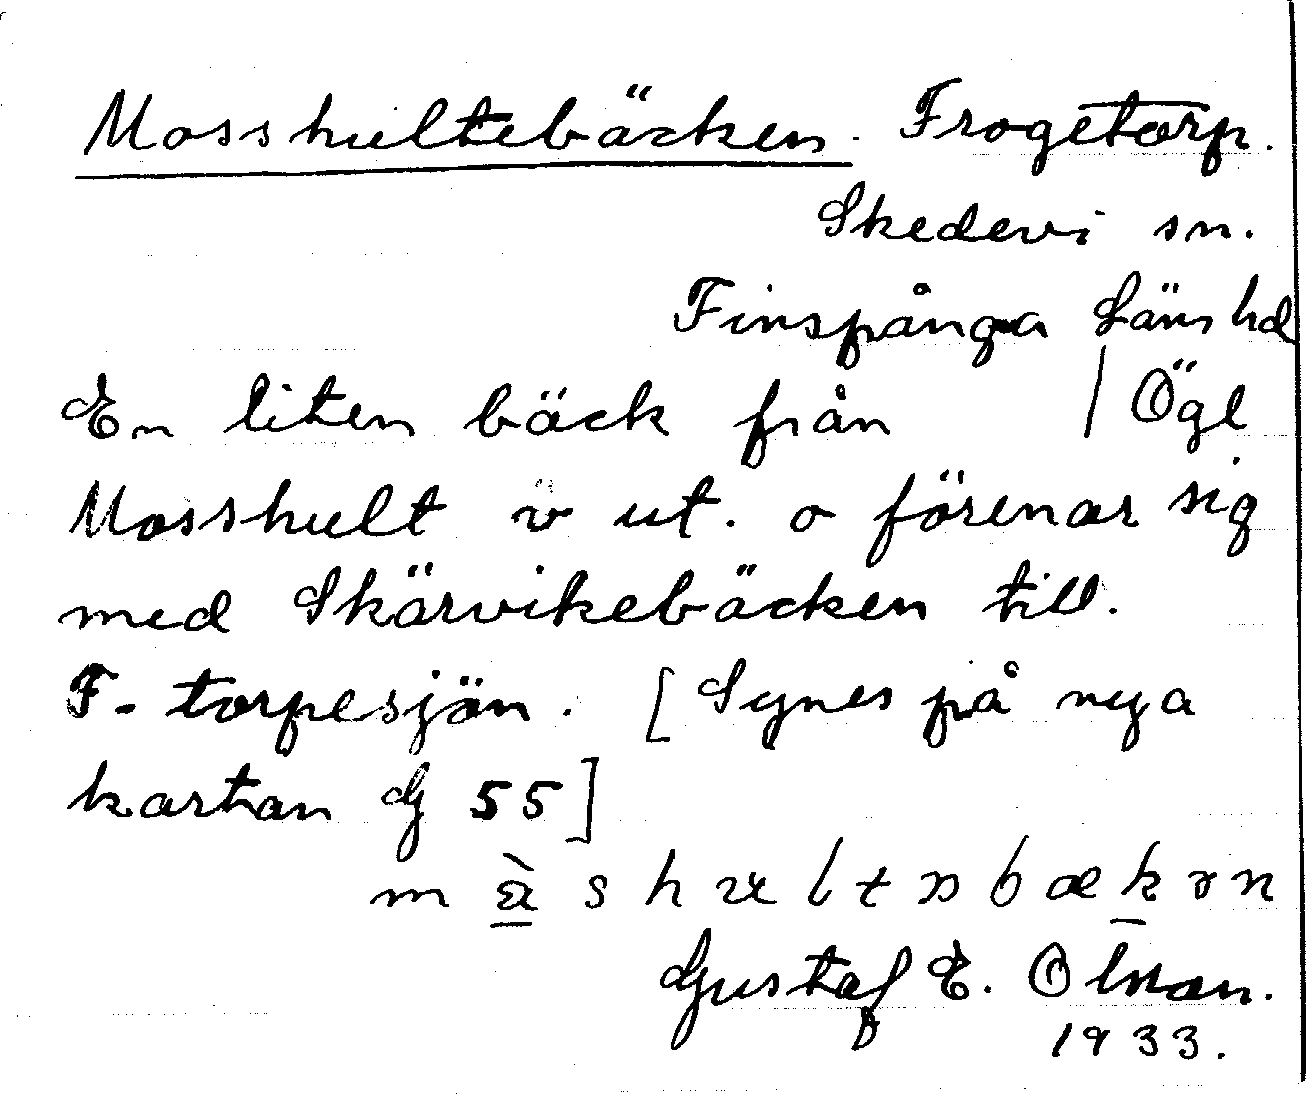 Mosshultebäcken. Frogetorp.
Skedevi sn.
Finspånga Läns hd
En liten bäck från / Ögl
Mosshult v ut. o förenar sig
med Skärvikebäcken till.
F-torpesjön. [Synes på nya
kartan G 55]
Gustaf E. Olsson.
1933.